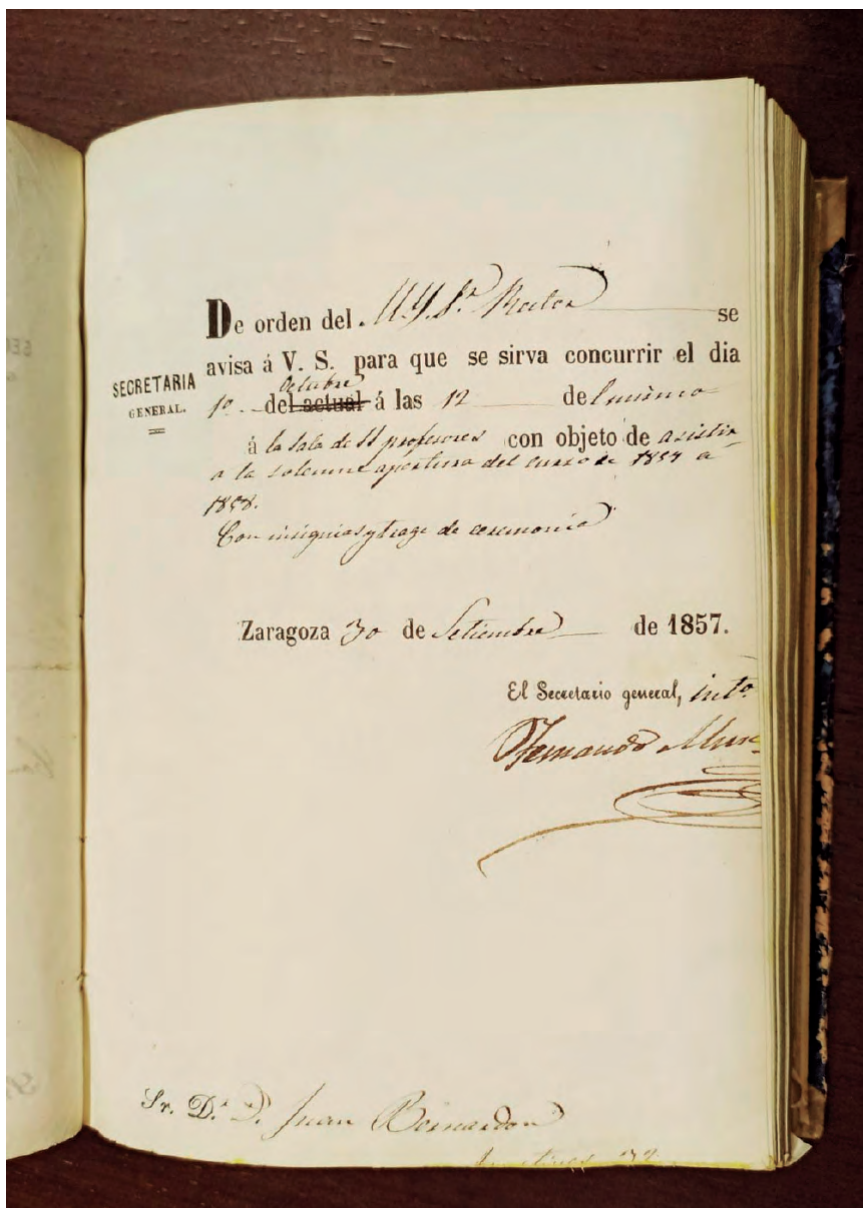 De orden del M. Y. Sr. Rector se
avisa á V. S. para que se sirva concurrir el dia
SECRETARIA
GENERAL.
Octubre
1º del actual á las 12 del mismo
á la Sala de SS profesores con objeto de asistir
a la solemne apertura del curso de 1857 a
1858.
Con insignias y trage de ceremonia
Zaragoza 30 de Setiembre de 1857.
El Secretario general, intº
Fernando
Sr. D.r D. Juan Bernardon